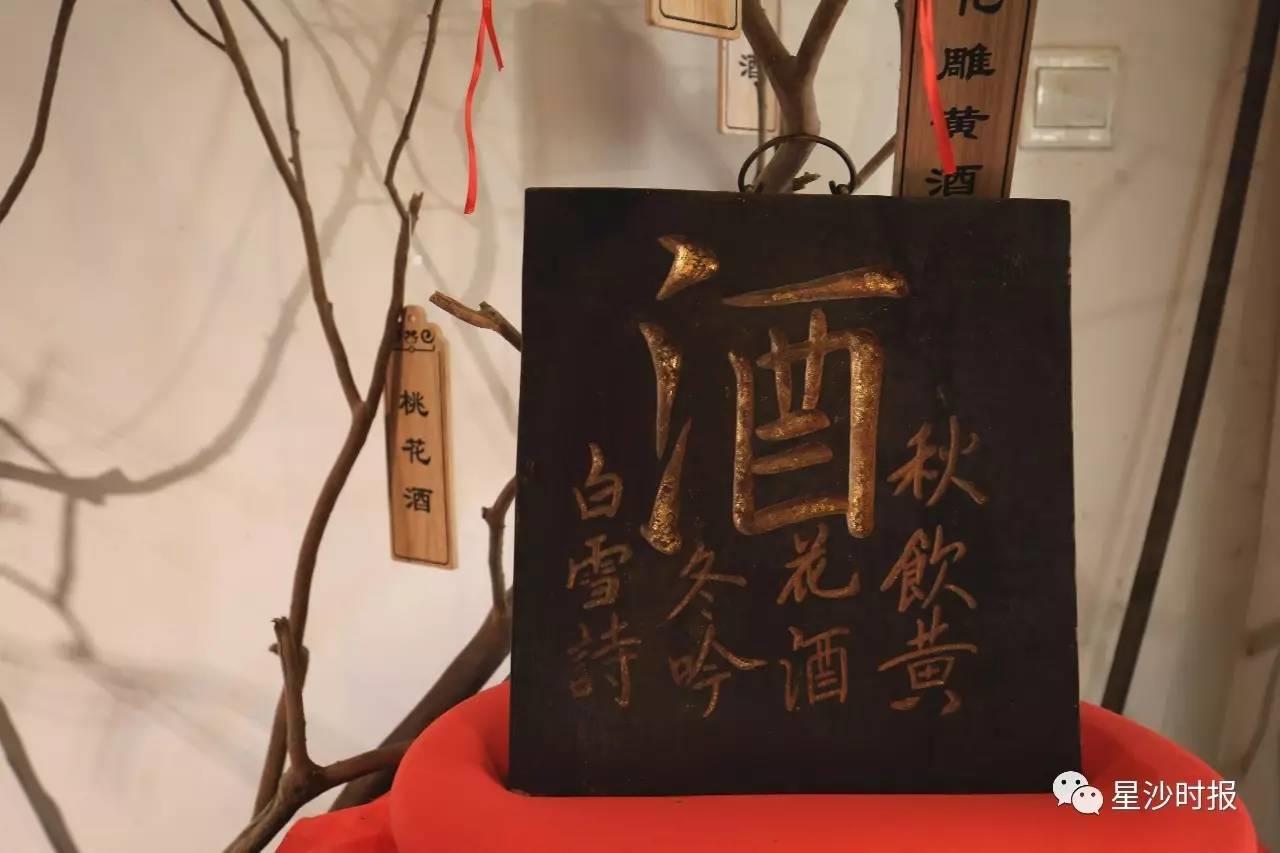 酒
秋飲黄
花酒
冬吟
白雪詩
桃花酒
雕黄酒
酒
星沙时报